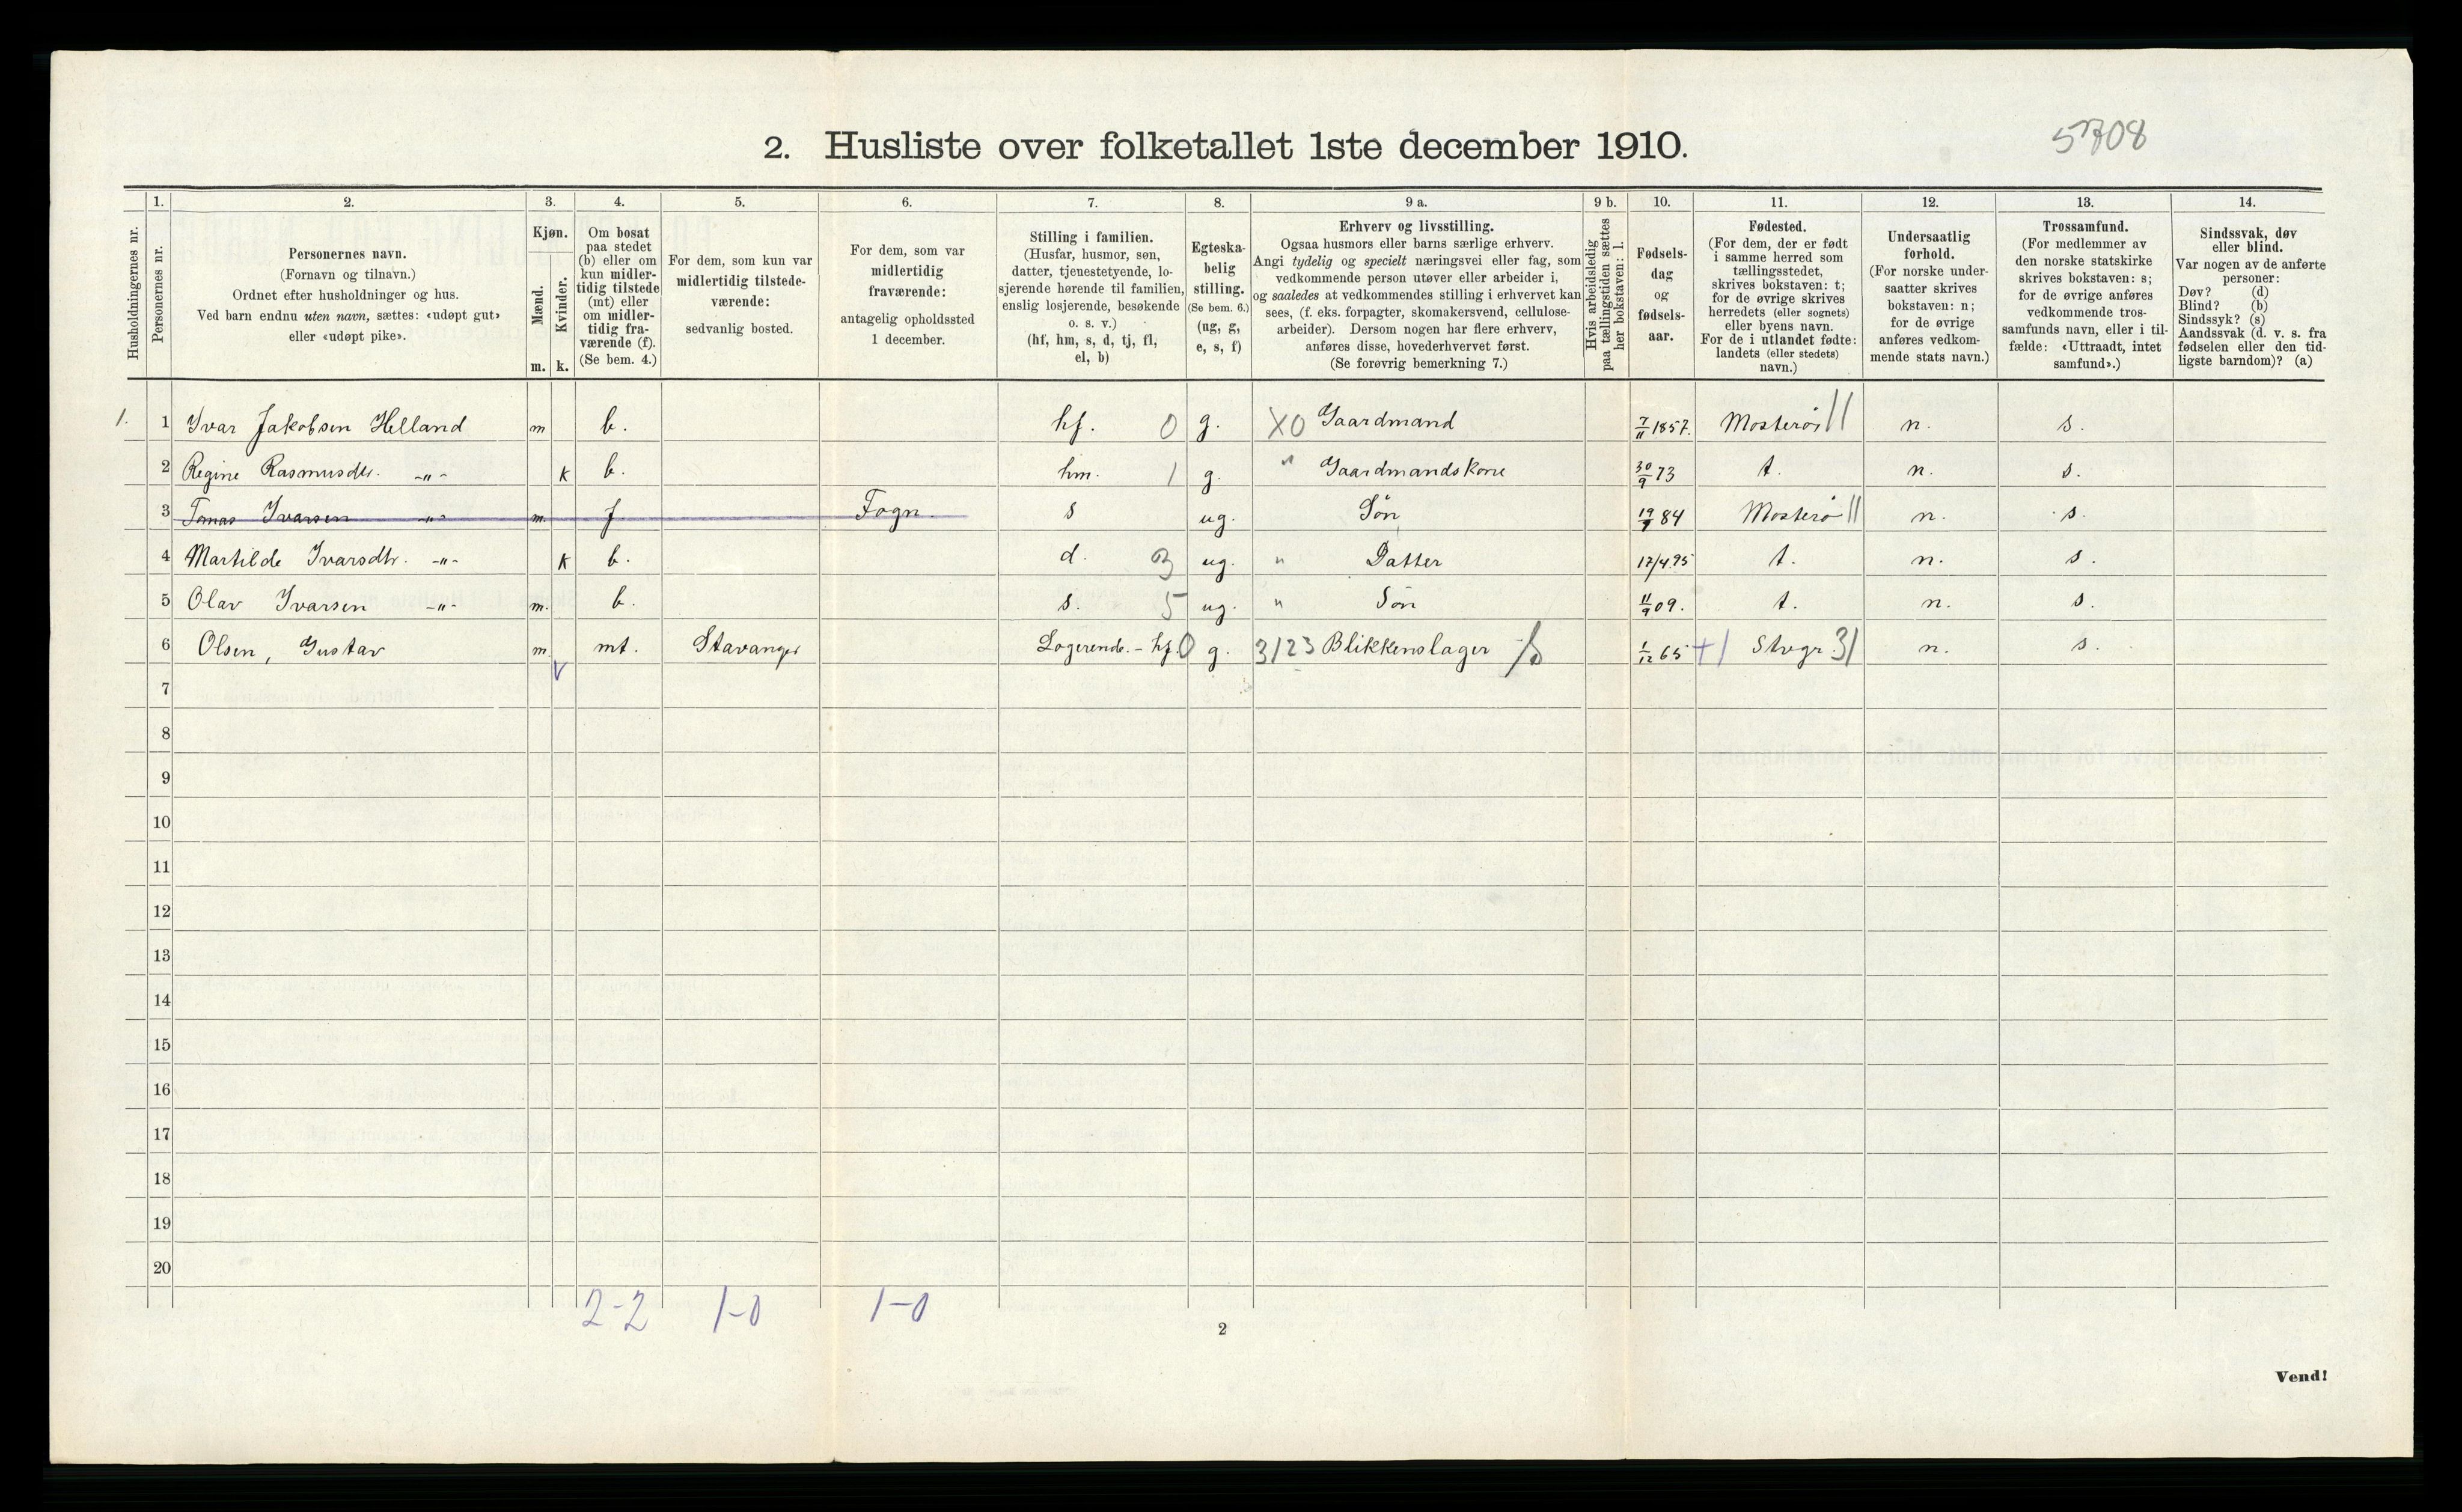 5708
2. Husliste over folketallet 1ste december 1910.
1. 2. 3. 4. 5. 6. 7. 8. 9 a. 9 b. 10. 11. 12. 13. 14.
Husholdningernes nr.
Personernes nr.
Personernes navn.
(Fornavn og tilnavn.)
Ordnet efter husholdninger og hus.
Ved barn endnu uten navn, sættes: «udøpt gut»
eller «udøpt pike».
Kjøn.
Mænd.
Kvinder.
m. k.
Om bosat
paa stedet
(b) eller om
kun midler-
tidig tilstede
(mt) eller
om midler-
tidig fra-
værende (f).
(Se bem. 4.)
For dem, som kun var
midlertidig tilstede-
værende:
sedvanlig bosted.
For dem, som var
midlertidig
fraværende:
antagelig opholdssted
1 december.
Stilling i familien.
(Husfar, husmor, søn,
datter, tjenestetyende, lo-
sjerende hørende til familien,
enslig losjerende, besøkende
o. s. v.)
(hf, hm, s, d, tj, fl,
el, b)
Egteska-
belig
stilling.
(Se bem. 6.)
(ug, g,
e, s, f)
Erhverv og livsstilling.
Ogsaa husmors eller barns særlige erhverv.
Angi tydelig og specielt næringsvei eller fag, som
vedkommende person utøver eller arbeider i,
og saaledes at vedkommendes stilling i erhvervet kan
sees, (f. eks. forpagter, skomakersvend, cellulose-
arbeider). Dersom nogen har flere erhverv,
anføres disse, hovederhvervet først.
(Se forøvrig bemerkning 7.)
Hvis arbeidsledig
paa tællingstiden sættes
her bokstaven: l.
Fødsels-
dag
og
fødsels-
aar.
Fødested.
(For dem, der er født
i samme herred som
tællingsstedet,
skrives bokstaven: t;
for de øvrige skrives
herredets (eller sognets)
eller byens navn.
For de i utlandet fødte:
landets (eller stedets)
navn.)
Undersaatlig
forhold.
(For norske under-
saatter skrives
bokstaven: n;
for de øvrige
anføres vedkom-
mende stats navn.)
Trossamfund.
(For medlemmer av
den norske statskirke
skrives bokstaven: s;
for de øvrige anføres
vedkommende tros-
samfunds navn, eller i til-
fælde: «Uttraadt, intet
samfund».)
Sindssvak, døv
eller blind.
Var nogen av de anførte
personer:
Døv? (d)
Blind? (b)
Sindssyk? (s)
Aandssvak (d. v. s. fra
fødselen eller den tid-
ligste barndom)? (a)
1. 1 Ivar Jakobsen Helland m b. hf. 0 g. X0 Gaardmand 7/11 1857. Mosterøi || n. s.
2 Regine Rasmusdtr. -"- k b. hm. 1 g. " Gaardmandskone 30/9 73 t. n. s.
3 Tomas Ivarsen -"- m. f Fogn. s ug. Søn 19/9 84 Mosterø || n. s.
4 Martilde Ivarsdtr. -"- k b. d. 3 ug. " Datter 17/4.95 t. n. s.
5 Olav Ivarsen -"- m. b. s. 5 ug. " Søn 11/9 09. t. n. s.
6 Olsen, Gustav m. mt. Stavanger Logerende. - hf. 0 g. 3123 Blikkenslager 1/12 65 +1 Stvgr. 31 n. s.
7
8
9
10
11
12
13
14
15
16
17
18
19
20
2-2 1-0 1-0
2
Vend!